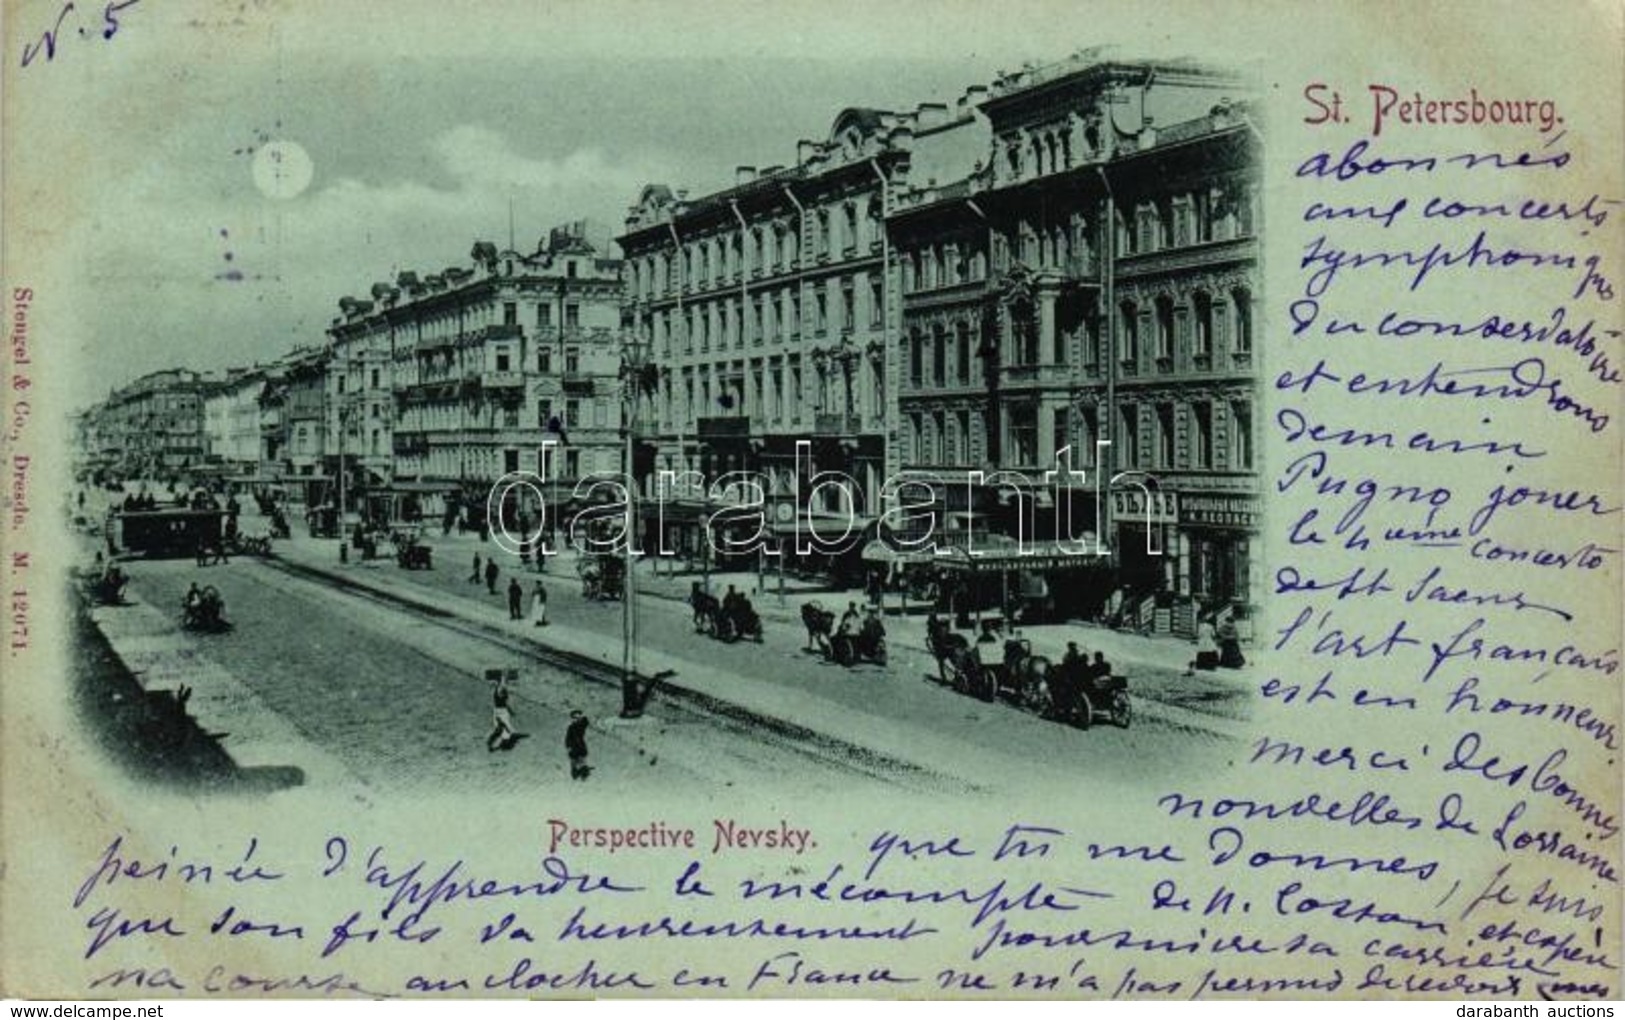 N. 5
St. Petersbourg.
abonnés
aux concerts
symphoniques
du conservatoire
et entendrons
demain
Pugno jouer
le nième concerto
de St Saens
l'art français
est en honneur
merci des bonnes
nouvelles de Lorraine
Perspective Nevsky.
que tu me donnes, je suis
peinée d'apprendre le mécompte de N. Cossón et espère
que son fils va heureusement poursuivre sa carrière
ma course au clocher en France ne m'a pas permis de revoir mes
Stengel & Co., Dresde. M. 12071.
darabanth
darabanth auctions